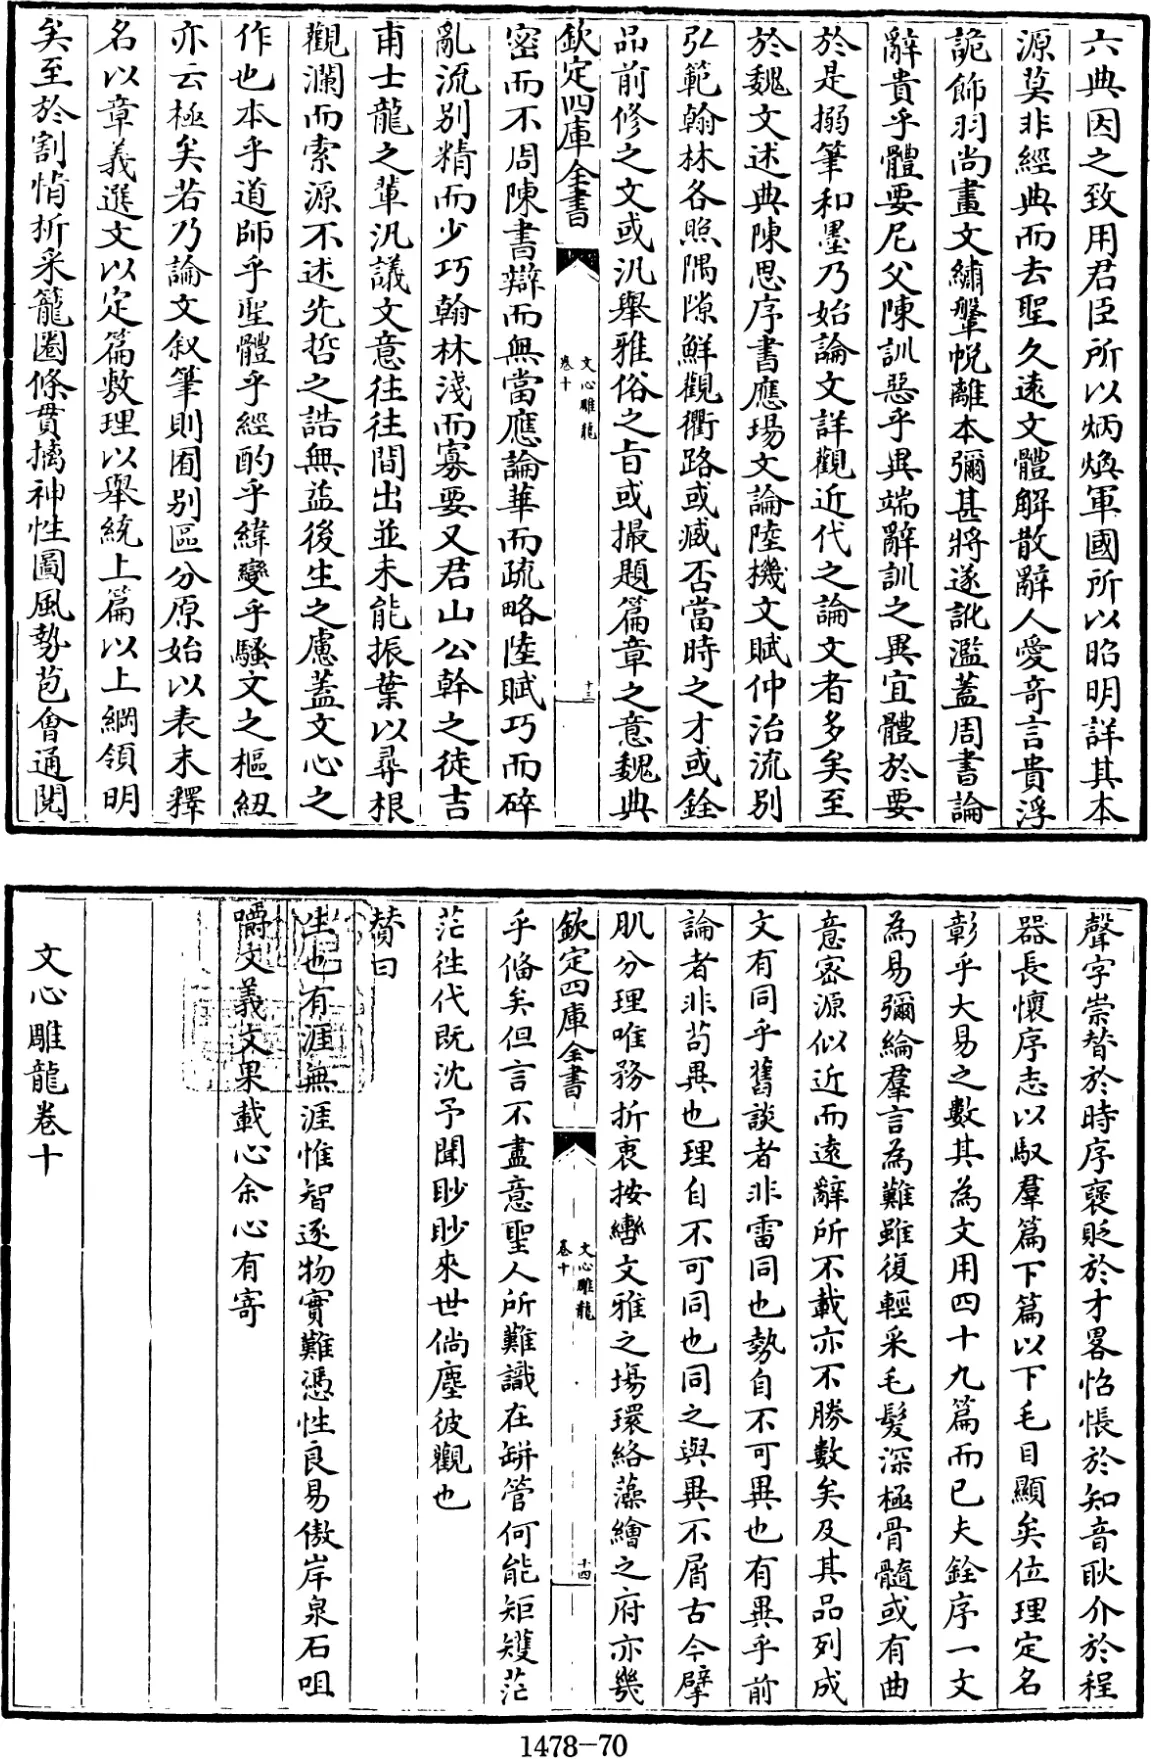 六典因之致用君臣所以炳煥軍國所以昭明詳其本
源莫非經典而去聖久遠文體解散辭人愛奇言貴浮
詭飾羽尚畫文繡鞶帨離本彌甚將遂訛濫蓋周書論
辭貴乎體要尼父陳訓惡乎異端辭訓之異宜體於要
於是搦筆和墨乃始論文詳觀近代之論文者多矣至
於魏文述典陳思序書應瑒文論陸機文賦仲洽流别
弘範翰林各照隅隙鮮觀衢路或臧否當時之才或銓
品前修之文或汎舉雅俗之旨或撮題篇章之意魏典
欽定四庫全書
文心雕龍
卷十
十三
密而不周陳書辯而無當應論華而疏略陸賦巧而碎
亂流别精而少巧翰林淺而寡要又君山公幹之徒吉
甫士龍之輩汎議文意往往間出並未能振葉以尋根
觀瀾而索源不述先哲之誥無益後生之慮蓋文心之
作也本乎道師乎聖體乎經酌乎緯變乎騷文之樞紐
亦云極矣若乃論文叙筆則囿别區分原始以表末釋
名以章義選文以定篇敷理以舉統上篇以上綱領明
矣至於割情折采籠圈條貫摛神性圖風勢苞會通閲
聲字崇替於時序褒貶於才畧怊悵於知音耿介於程
器長懷序志以馭羣篇下篇以下毛目顯矣位理定名
彰乎大易之數其為文用四十九篇而已夫銓序一文
為易彌綸羣言為難雖復輕采毛髮深極骨髓或有曲
意密源似近而遠辭所不載亦不勝數矣及其品列成
文有同乎舊談者非雷同也勢自不可異也有異乎前
論者非苟異也理自不可同也同之與異不屑古今擘
肌分理唯務折衷按轡文雅之場環絡藻繪之府亦幾
欽定四庫全書
文心雕龍
卷十
十四
乎備矣但言不盡意聖人所難識在缾管何能矩矱茫
茫往代既沈予聞眇眇來世倘塵彼觀也
贊曰
生也有涯無涯惟智逐物實難憑性良易傲岸泉石咀
嚼文義文果載心余心有寄
文心雕龍卷十
1478-70